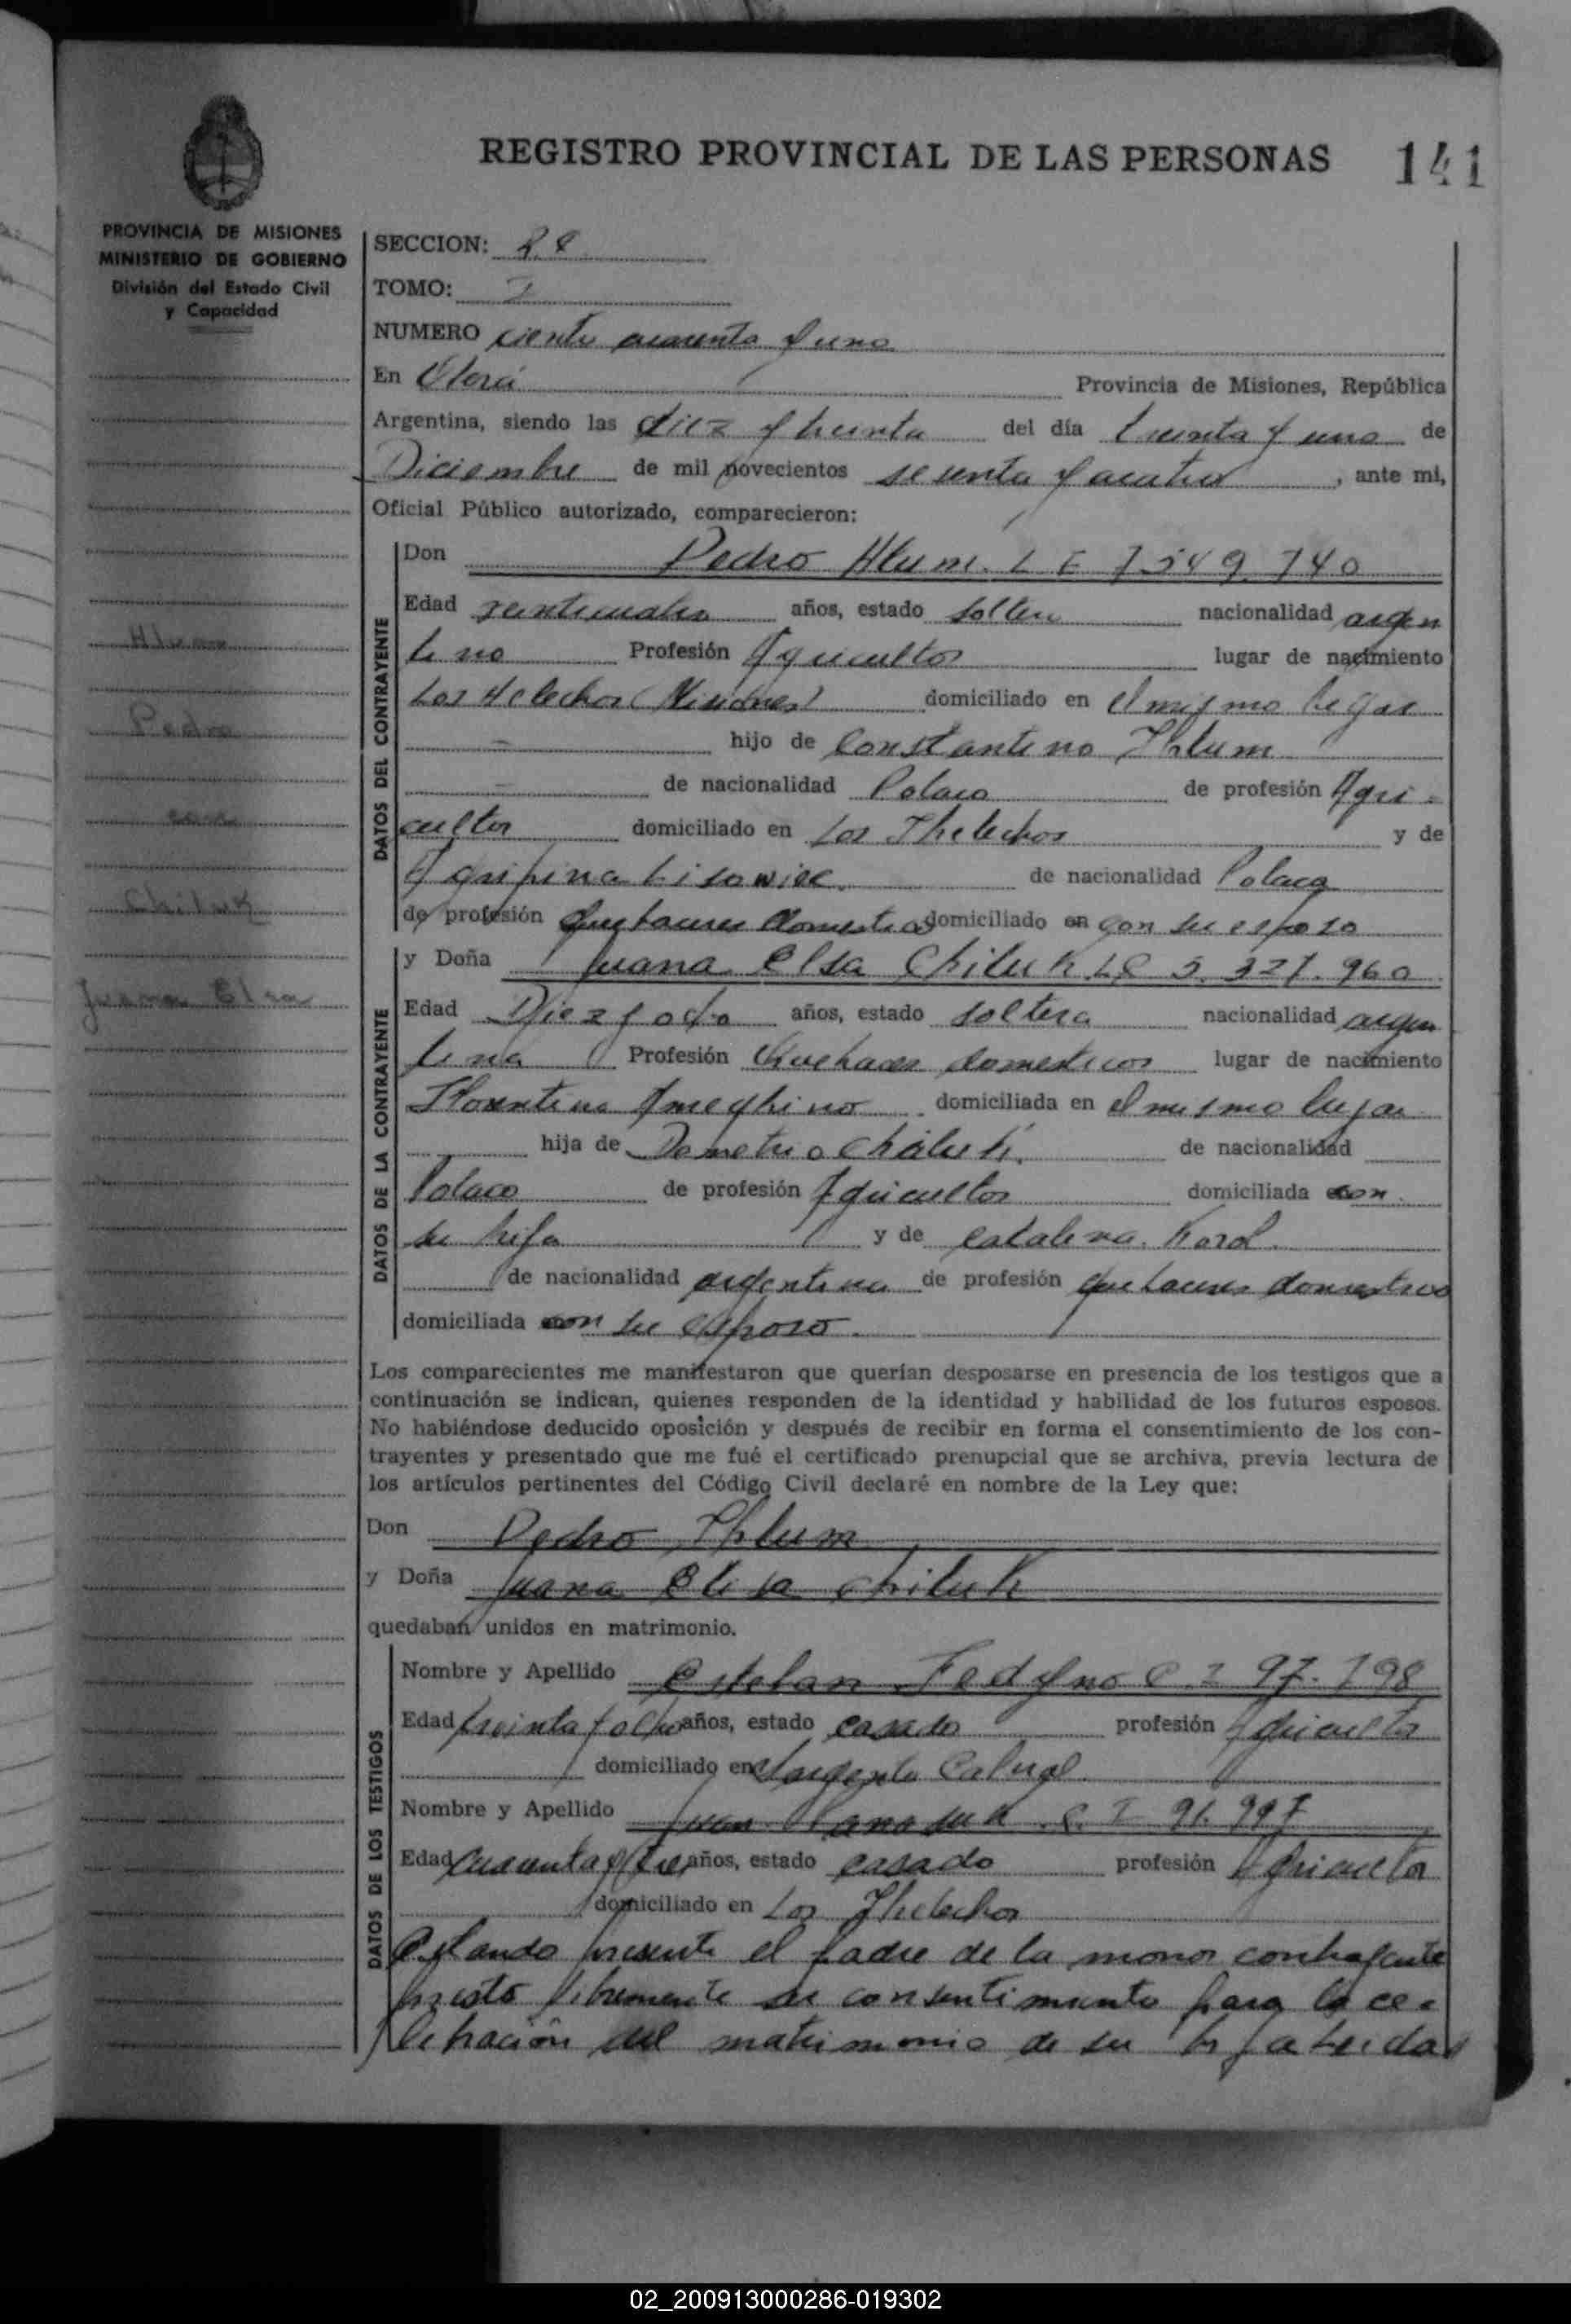 REGISTRO PROVINCIAL DE LAS PERSONAS 141
PROVINCIA DE MISIONES
MINISTERIO DE GOBIERNO
División del Estado Civil
y Capacidad
Hlum
Pedro
con
Chiluk
Juana Elsa
SECCION: 2ª
TOMO: I
NUMERO ciento cuarenta y uno
En Oberá Provincia de Misiones, República
Argentina, siendo las diez y treinta del día treinta y uno de
Diciembre de mil novecientos sesenta y cuatro, ante mi,
Oficial Público autorizado, comparecieron:
DATOS DEL CONTRAYENTE
Don Pedro Hlum. L E 7.549.740
Edad veinticuatro años, estado soltero nacionalidad argen
tino Profesión Agricultor lugar de nacimiento
Los Helechos (Misiones) domiciliado en el mismo lugar
hijo de Constantino Hlum
de nacionalidad Polaco de profesión Agri-
cultor domiciliado en Los Helechos y de
Agripina Lisowiec de nacionalidad Polaca
de profesión quehaceres domesticos domiciliado en con su esposo
DATOS DE LA CONTRAYENTE
y Doña Juana Elsa Chiluk LC 5.327.960
Edad Diez y ocho años, estado soltera nacionalidad argen
tina Profesión Quehacer domesticos lugar de nacimiento
Florentino Ameghino domiciliada en el mismo lugar
hija de Demetrio Chiluk. de nacionalidad
Polaco de profesión Agricultor domiciliada con
su hija y de Catalina Korol
de nacionalidad argentina de profesión quehaceres domesticos
domiciliada con su esposo.
Los comparecientes me manifestaron que querían desposarse en presencia de los testigos que a
continuación se indican, quienes responden de la identidad y habilidad de los futuros esposos.
No habiéndose deducido oposición y después de recibir en forma el consentimiento de los con-
trayentes y presentado que me fué el certificado prenupcial que se archiva, previa lectura de
los artículos pertinentes del Código Civil declaré en nombre de la Ley que:
Don Pedro Hlum
y Doña Juana Elsa Chiluk
quedaban unidos en matrimonio.
DATOS DE LOS TESTIGOS
Nombre y Apellido Esteban Fedyno C. I 97.798
Edad treinta y ocho años, estado casado profesión Agricultor
domiciliado en Sargento Cabral
Nombre y Apellido Juan C. I 91.997
Edad cuarenta y tres años, estado casado profesión Agricultor
domiciliado en Los Helechos
Estando presente el padre de la menor contrayente
presto libremente su consentimiento para la ce-
lebración del matrimonio de su hija Leida
02_200913000286-019302